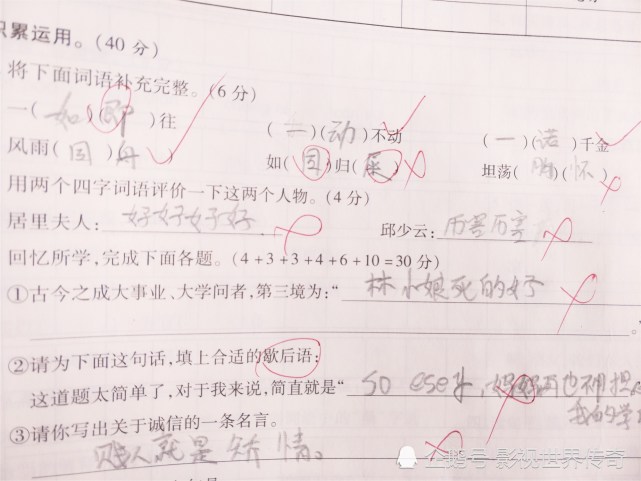 积累运用。(40 分)
将下面词语补充完整。(6 分)
一( 如 )( 即 )往
( 一 )( 动 )不动
( 一 )( 诺 )千金
风雨( 国 )( 舟 )
如( )归( )
坦荡( 胸 )( 怀 )
用两个四字词语评价一下这两个人物。(4 分)
居里夫人: 好好好好
邱少云: 厉害厉害
回忆所学,完成下面各题。(4+3+3+4+6+10=30 分)
①古今之成大事业、大学问者,第三境为:“ 林小娘死的好
”。
②请为下面这句话,填上合适的歇后语:
这道题太简单了,对于我来说,简直就是“ so esey,妈妈再也不用担
我的学
③请你写出关于诚信的一条名言。
贱人就是矫情。
企鹅号 影视世界传奇